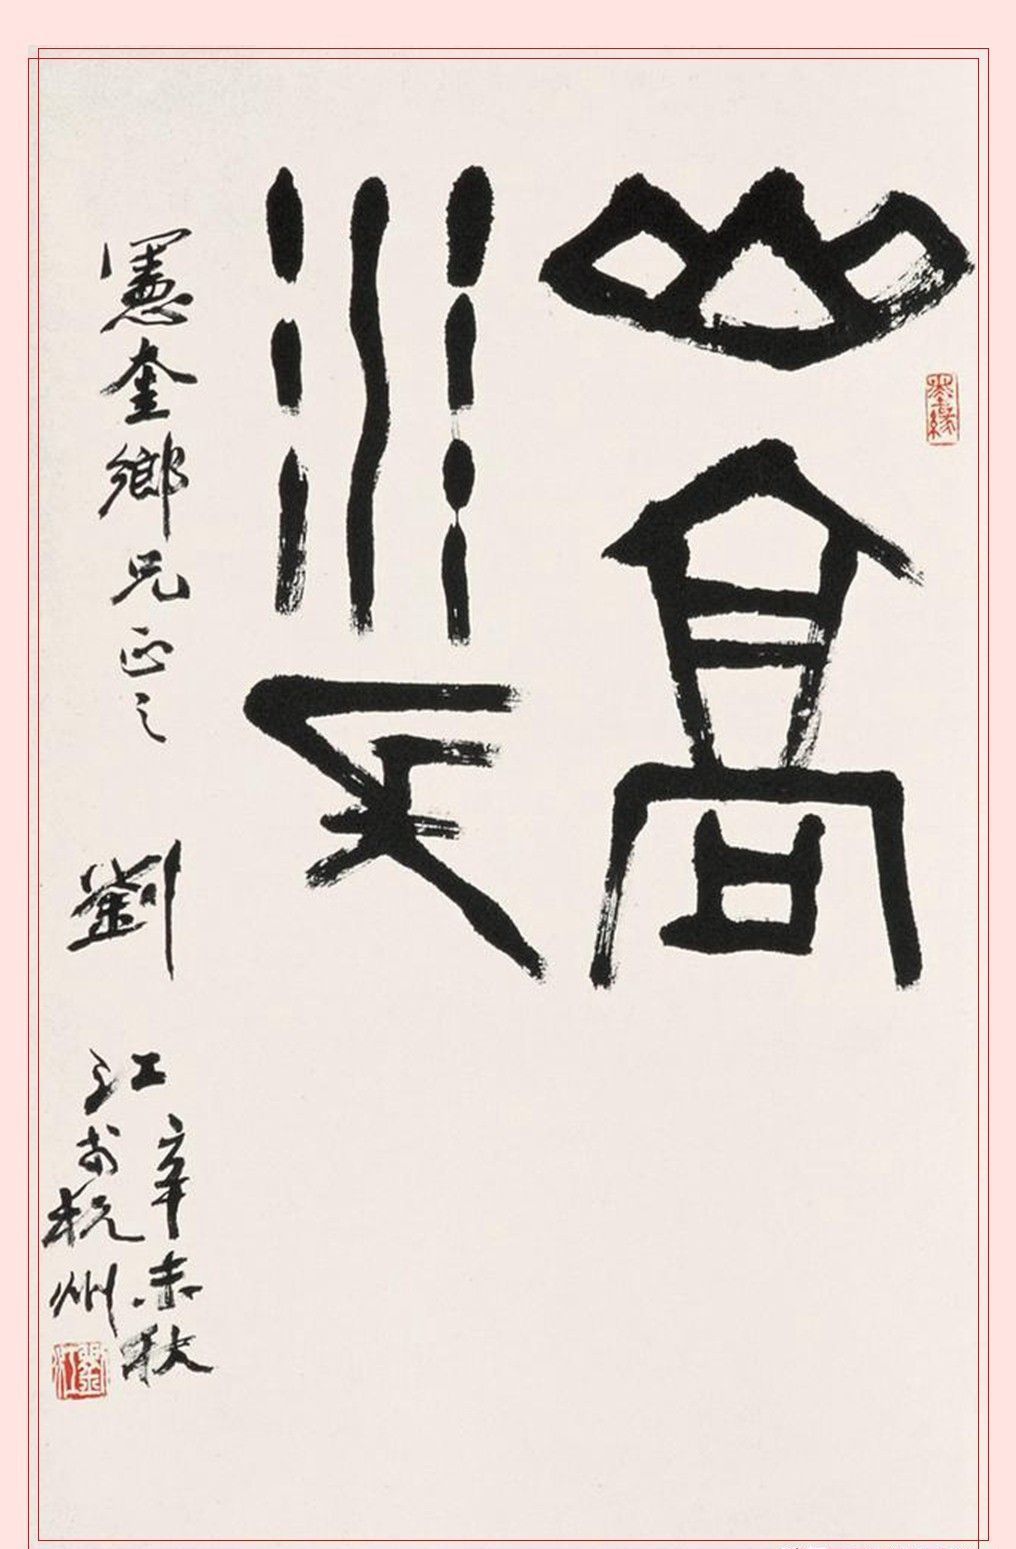 山高
水長
憲奎鄉兄正之
劉江
辛未秋
於杭州
墨緣
劉江